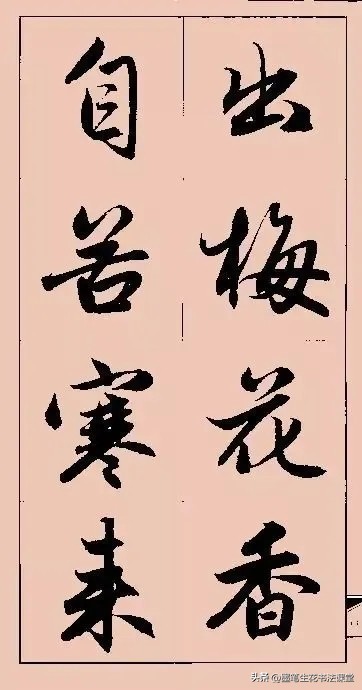 出梅花香
自苦寒来
头条 @墨笔生花书法课堂